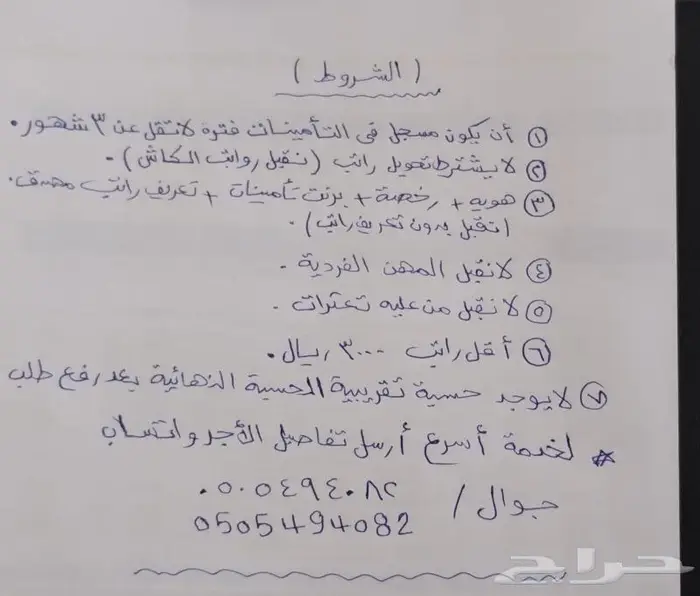 ( الشروط )
① أن يكون مسجل في التأمينات فترة لاتقل عن ٣ شهور.
② لا يشترط تحويل راتب (نقبل رواتب الكاش).
③ هويه + رخصة + برنت تأمينات + تعريف راتب مصدق.
(نقبل بدون تعريف راتب).
④ لانقبل المهن الفردية.
⑤ لا نقبل من عليه تعثرات.
⑥ أقل راتب ٣٠٠٠ ريال.
⑦ لايوجد حسبة تقريبية الحسبة النهائية بعد رفع طلب
* لخدمة أسرع أرسل تفاصيل الأجر واتساب
جوال / ٠٥٠٥٤٩٤٠٨٢
0505494082
حراج